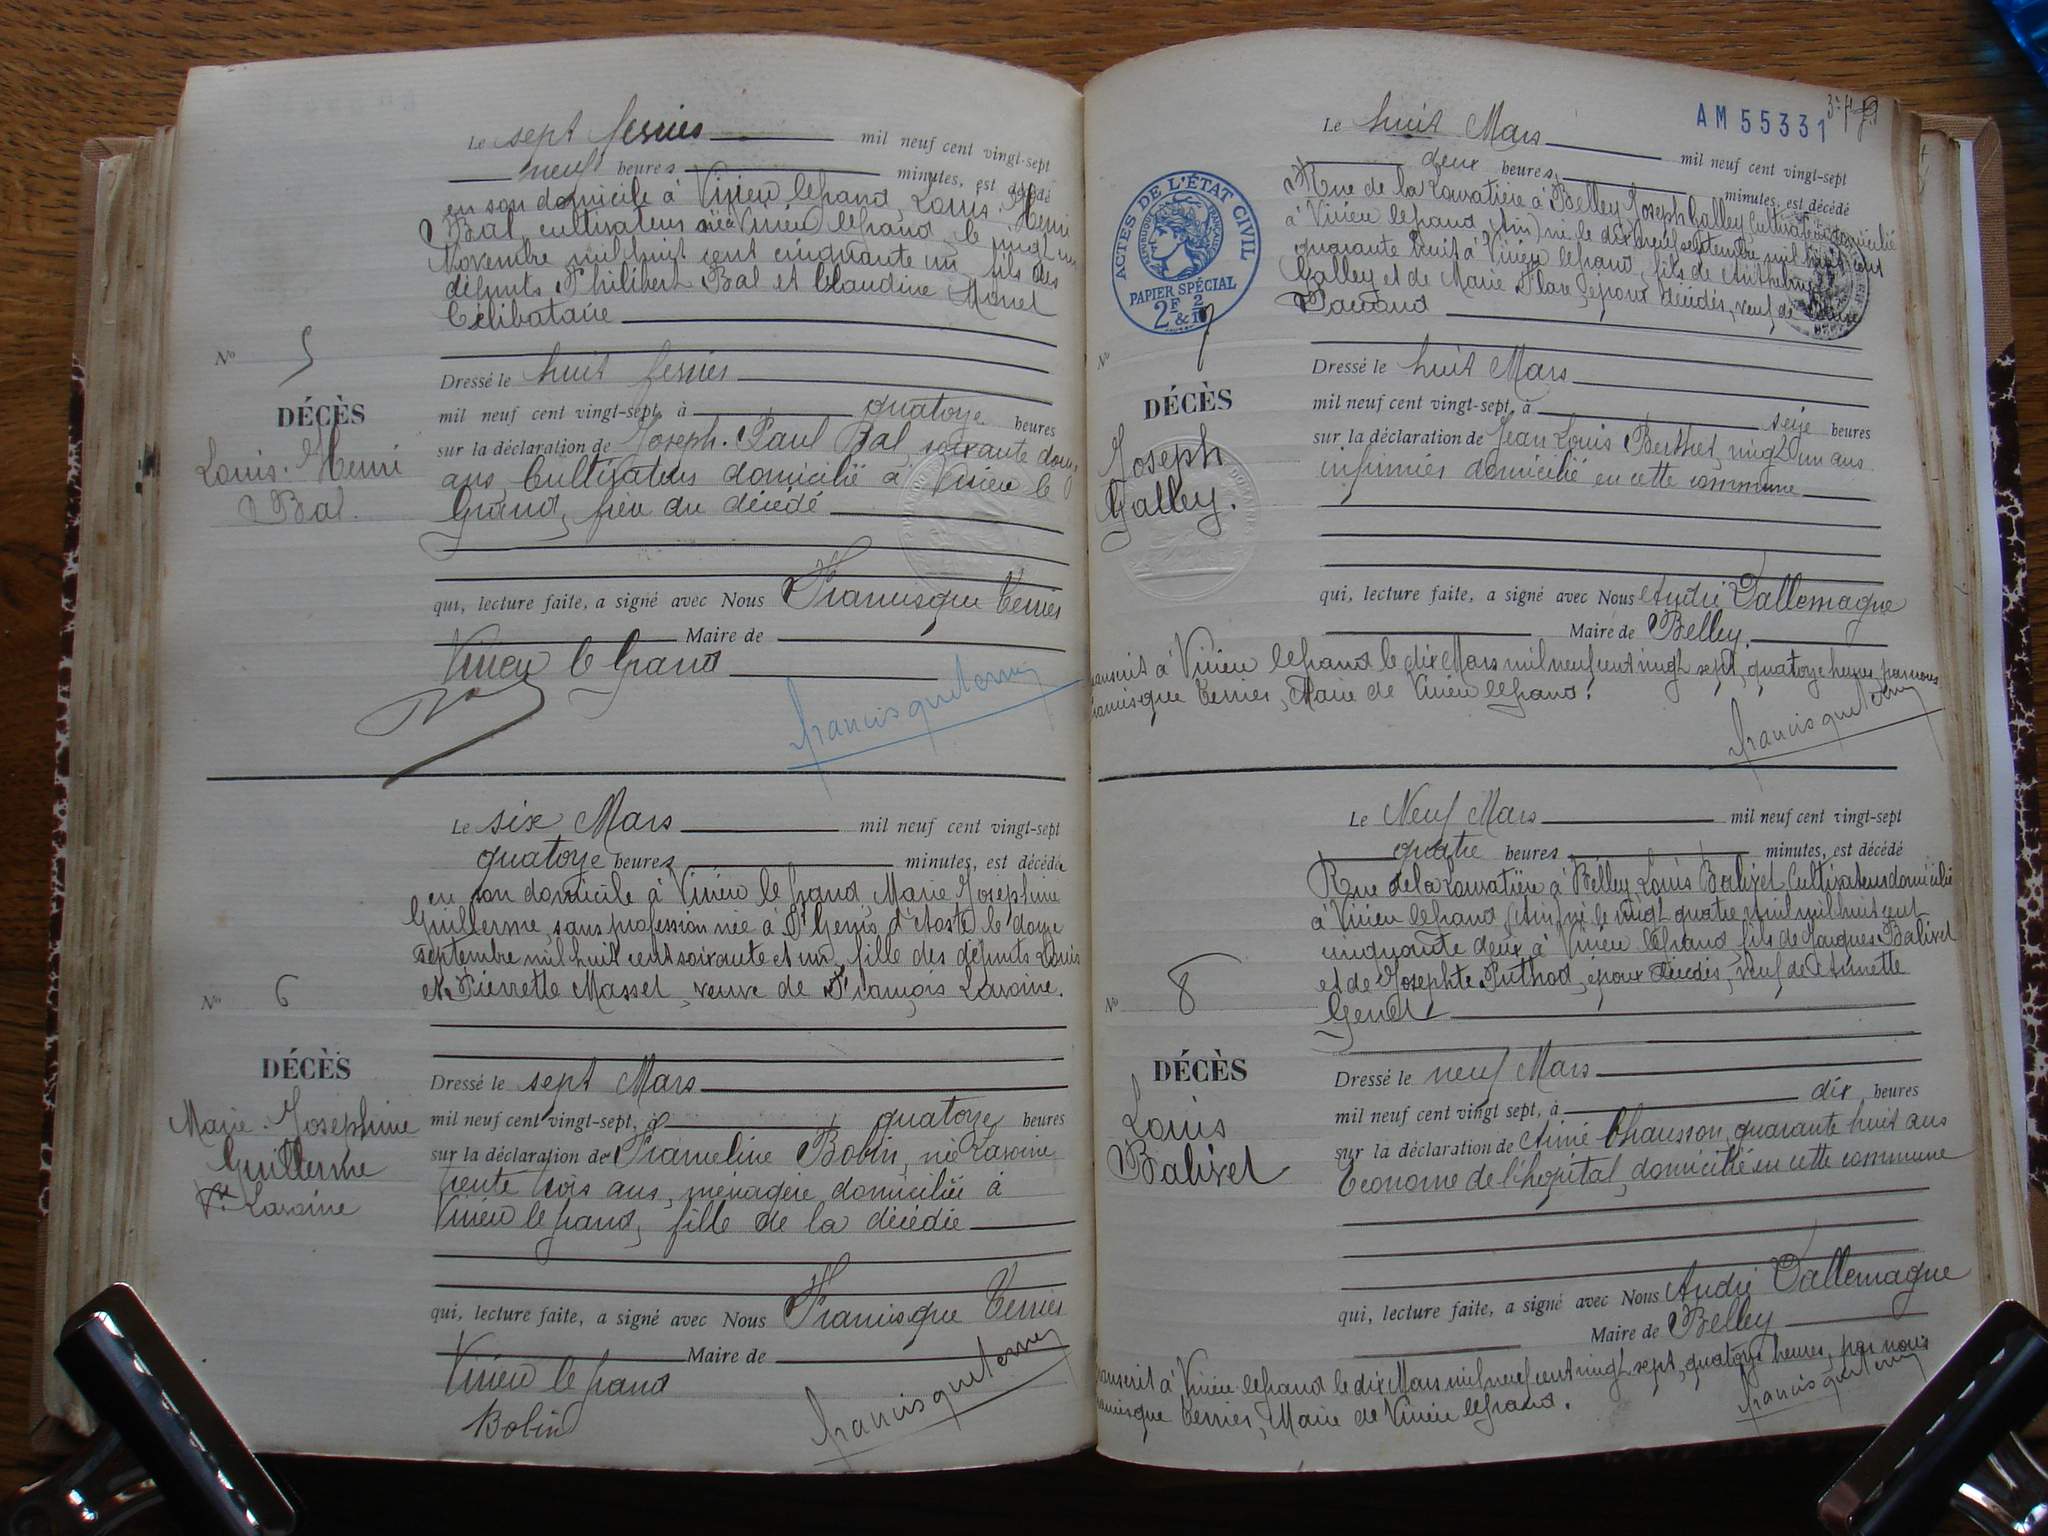 Le sept février mil neuf cent vingt-sept
neuf heures minutes, est décédé
en son domicile à Virieu le grand, Louis-Henri
Bal, cultivateur né à Virieu le grand, le vingt un
Novembre mil huit cent cinquante un, fils des
défunts Philibert Bal et Claudine Monet
Célibataire
No 5
DÉCÈS
Louis-Henri
Bal.
Dressé le huit février
mil neuf cent vingt-sept, à quatorze heures
sur la déclaration de Joseph-Paul Bal, soixante douze
ans, Cultivateur domicilié à Virieu le
Grand, frère du décédé
qui, lecture faite, a signé avec Nous Francisque Terrier
Maire de
Virieu le Grand
Bal
francisque terrier
Le six Mars mil neuf cent vingt-sept
quatorze heures minutes, est décédé
en son domicile à Virieu le grand, Marie Joséphine
Guillerme, sans profession née à St Genis d'Aoste le douze
septembre mil huit cent soixante et un, fille des défunts Louis
et Pierrette Massel, veuve de François Lavoine.
No 6
DÉCÈS
Marie-Joséphine
Guillerme
Vve Lavoine
Dressé le sept Mars
mil neuf cent vingt-sept, à quatorze heures
sur la déclaration de Franceline Bobin, née Lavoine
trente trois ans, ménagère domiciliée à
Virieu le grand, fille de la décédée
qui, lecture faite, a signé avec Nous Francisque Terrier
Maire de
Virieu le grand
Bobin
francisque terrier
AM 55331
Le huit Mars mil neuf cent vingt-sept
deux heures minutes, est décédé
Rue de la Louvatière à Belley Joseph Galley, Cultivateur domicilié
à Virieu le grand (Ain) né le dix neuf septembre mil huit cent
quarante huit à Virieu le grand, fils de Anthelme
Galley et de Marie époux décédés, veuf de Louise
ACTES DE L'ÉTAT CIVIL
RÉPUBLIQUE FRANÇAISE
PAPIER SPÉCIAL
2F & 2/10
No 7
DÉCÈS
Joseph
Galley.
Dressé le huit Mars
mil neuf cent vingt-sept, à seize heures
sur la déclaration de Jean Louis Berthet, vingt un ans
infirmier domicilié en cette commune
qui, lecture faite, a signé avec Nous André Dallemagne
Maire de Belley
Transcrit à Virieu le grand le dix Mars mil neuf cent vingt sept, quatorze heures, par nous
Francisque Terrier, Maire de Virieu le grand.
francisque terrier
Le Neuf Mars mil neuf cent vingt-sept
quatre heures minutes, est décédé
Rue de la Louvatière à Belley Louis Balivet Cultivateur domicilié
à Virieu le grand (Ain) né le vingt quatre Avril mil huit cent
cinquante deux à Virieu le grand, fils de Jacques Balivet
et de Josephte Puthod, époux décédés, veuf de Annette
Genet
No 8
DÉCÈS
Louis
Balivet
Dressé le neuf Mars
mil neuf cent vingt sept, à dix heures
sur la déclaration de Aimé Chausson, quarante huit ans
Econome de l'hôpital, domicilié en cette commune
qui, lecture faite, a signé avec Nous André Dallemagne
Maire de Belley
Transcrit à Virieu le grand le dix Mars mil neuf cent vingt sept, quatorze heures, par nous
Francisque Terrier, Maire de Virieu le grand.
francisque terrier